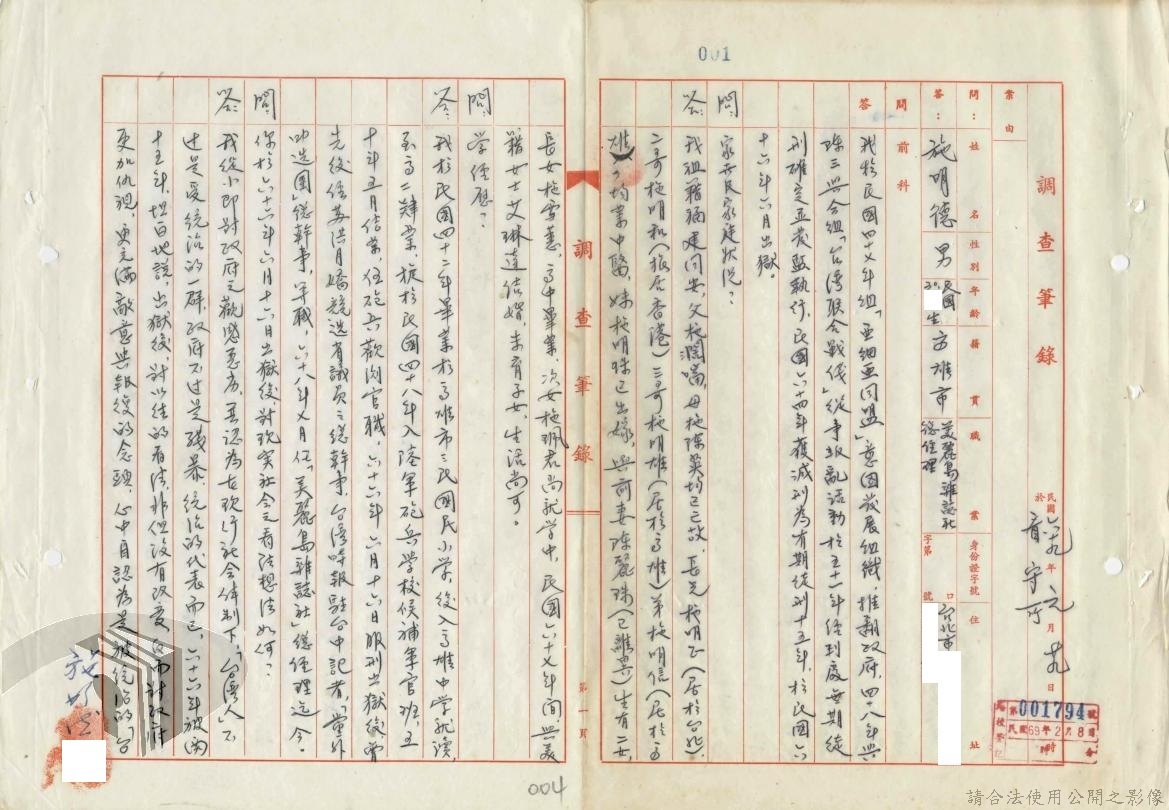 001
調查筆錄
民國六十九年元月十九日
於看守所
案由
問：姓名 性別 年齡 籍貫 職業 身份證字號 住址
答：施明德 男 民國30生 高雄市 美麗島雜誌社總經理 字第 號 台北市
問 前科
答 我於民國四十七年組「亞細亞同盟」意圖發展組織推翻政府，四十八年與
陳三興合組「台灣聯合戰線」從事叛亂活動於五十一年經判處無期徒
刑確定並發監執行，民國六十四年獲減刑為有期徒刑十五年，於民國六
十六年六月出獄。
問：家世及家庭狀況？
答：我祖籍福建同安，父施闊嘴，母施陳英均已亡故，長兄施明正（居於台北），
二哥施明和（旅居香港）三哥施明雄（居於高雄）弟施明信（居於高
雄），均業中醫，妹施明珠已出嫁，與前妻陳麗珠（已離異）生有二女，
長女施雪蕙，高中畢業，次女施珮君尚就学中，民國六十七年間，與美
籍女士艾琳達結婚，未育子女，生活尚可。
問：学經歷？
答：我於民國四十二年畢業於高雄市三民國民小学，後入高雄中学就讀，
至高二肄業，旋於民國四十八年入陸軍砲兵学校候補軍官班，五
十年五月結業，任砲兵觀測官職，六十六年六月十六日服刑出獄後曾
先後任蘇洪月嬌競選省議員之總幹事，台灣時報駐台中記者，「黨外
助選團」總幹事等職，六十八年七月任「美麗島雜誌社」總經理迄今。
問：你於六十六年六月十六日出獄後對現实社会之看法想法如何？
答：我從小即對政府之觀感惡劣，並認為在現行社会体制下，「台灣人」不
过是受統治的一群，政府不过是殘暴統治的代表而已，六十六年被関
十五年，坦白地說，出獄後，對以往的看法非但沒有改变，反而對政府
更加仇視，更充滿敵意與報復的念頭，心中自認為是被統治的台
調查筆錄
第一頁
施明德
004
第001794號
民國69年2月8日
時
請合法使用公開之影像